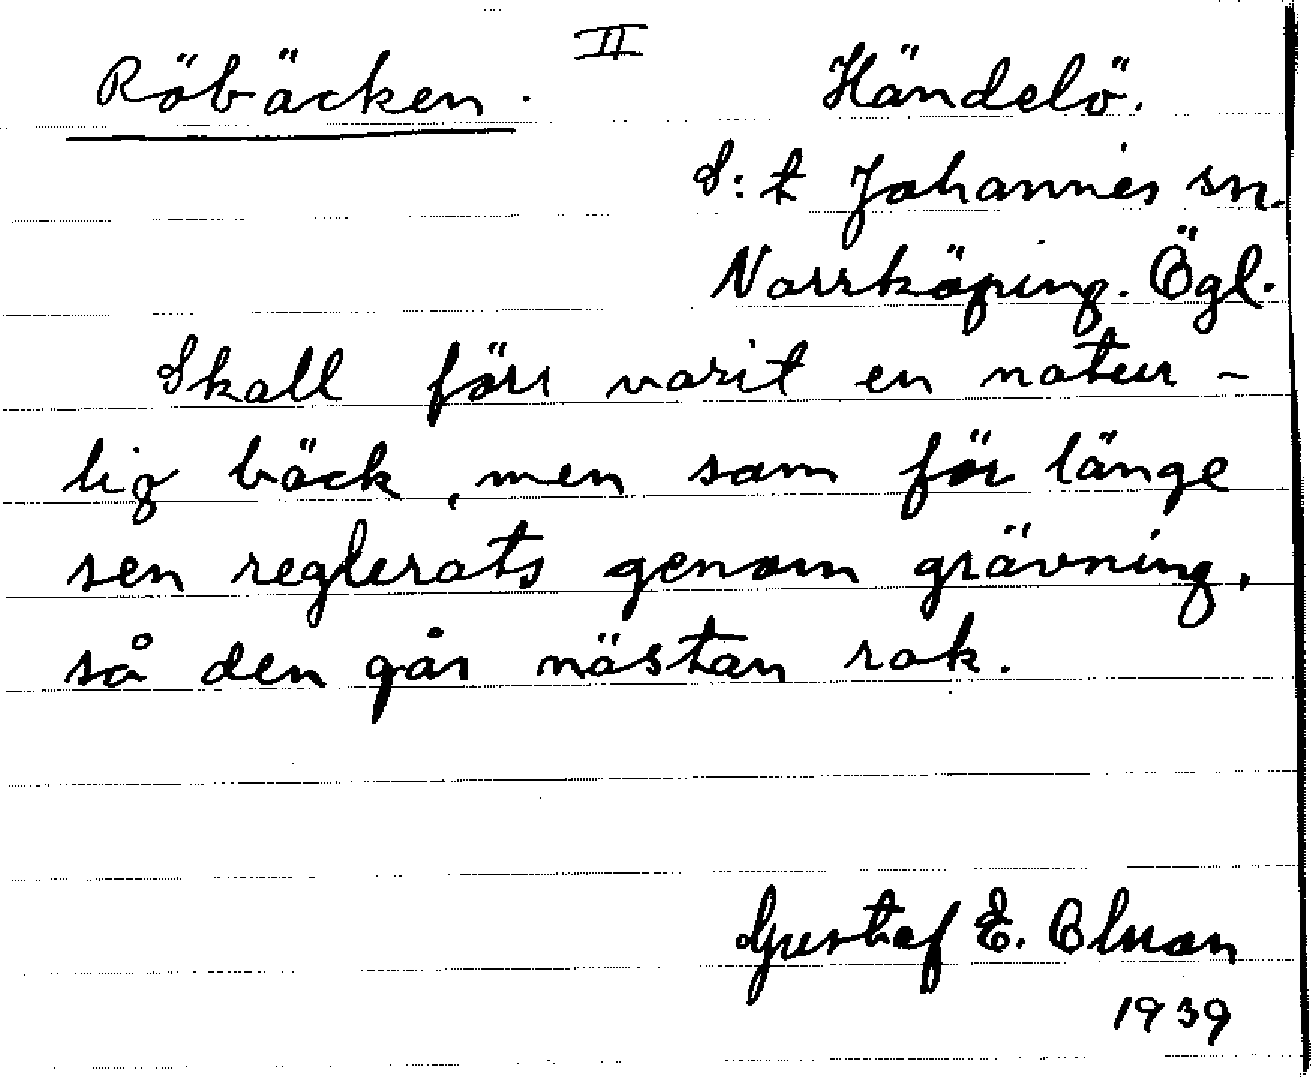 II
Röbäcken. Händelö.
S:t Johannes sn.
Norrköping. Ögl.
Skall förr varit en natur-
lig bäck, men som för länge
sen reglerats genom grävning,
så den går nästan rak.
Gustaf E. Olsson
1939